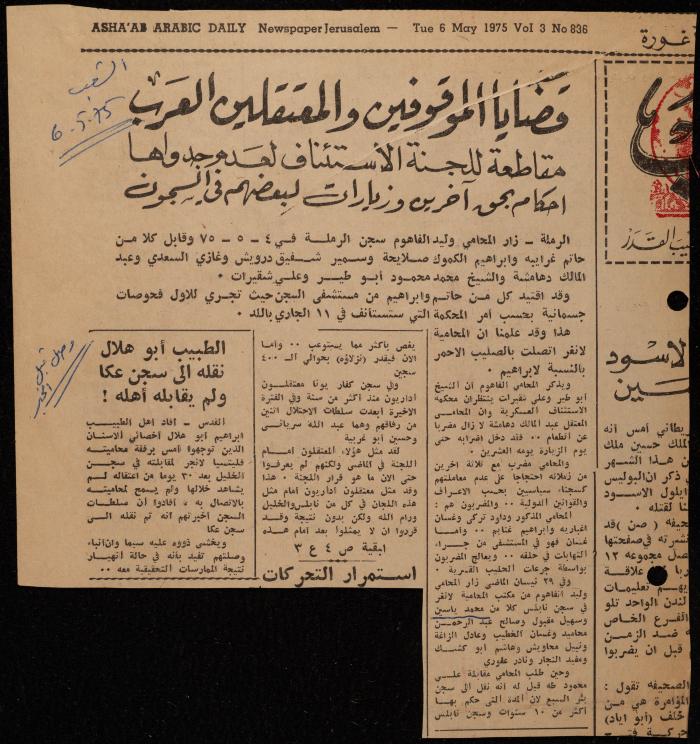 ASHA'AB ARABIC DAILY Newspaper Jerusalem — Tue 6 May 1975 Vol 3 No 836
غورة
الشعب
6.5.75
قضايا الموقوفين والمعتقلين العرب
مقاطعة للجنة الاستئناف لعدم جدواها
احكام بحق آخرين وزيارات لبعضهم في السجون
الرملة – زار المحامي وليد الفاهوم سجن الرملة في ٤ – ٥ – ٧٥ وقابل كلا من
حاتم غرايبه وابراهيم الكموك صلايحة وسمير شفيق درويش وغازي السعدي وعبد
المالك دهامشة والشيخ محمد محمود أبو طير وعلي شقيرات •
وقد اقتيد كل من حاتم وابراهيم من مستشفى السجن حيث تجري للاول فحوصات
جسمانية بحسب امر المحكمة التي ستستأنف في ١١ الجاري باللد •
هذا وقد علمنا ان المحامية
لانغر اتصلت بالصليب الاحمر
بالنسبة لابراهيم •
ويذكر المحامي الفاهوم ان الشيخ
أبو طير وعلي شقيرات ينتظران محكمة
الاستئناف العسكرية وان المحامي
المعتقل عبد المالك دهامشة لا زال مضربا
عن الطعام •• فقد دخل اضرابه حتى
يوم الزيارة يومه العشرين •
والمحامي مضرب مع ثلاثة اخرين
من زملائه احتجاجا على عدم معاملتهم
كسجناء سياسيين بحسب الاعراف
والقوانين الدولية •• والمضربون هم :
المحامي المذكور وداود تركي وغسان
اغباريه وابراهيم غنايم •• واما
غسان فهو في المستشفى من جراء
التهابات في حلقه •• ويعالج المضربون
بواسطة جرعات الحليب القسرية •
وفي ٢٩ نيسان الماضي زار المحامي
وليد الفاهوم من مكتب المحامية لانغر
في سجن نابلس كلا من محمد ياسين
وسهيل مقبول وصالح عبد الرحمن
محاميد وغسان الخطيب وعادل الزاغة
ونبيل محاويش وهاشم أبو كشك
ومفيد النجار ونادر عفوري
وحين طلب المحامي مقابلة علي
محمود طه قيل له أنه نقل الى سجن
بئر السبع لان المدة التي حكم بها
أكثر من ١٠ سنوات وسجن نابلس
يغص بأكثر مما يستوعب •• وأما
الان فيقدر (نزلاؤه) بحوالي الـ ٤٠٠
سجين
وفي سجن كفار يونا معتقلون
اداريون منذ اكثر من سنة وفي الفترة
الاخيرة ابعدت سلطات الاحتلال اثنين
من رفاقهم وهما عبد الله سرياني
وحسين أبو غربية
لقد مثل هؤلاء المعتقلون امام
اللجنة في الماضي ولكنهم لم يعرفوا
حتى الان ما هو قرار اللجنة • هذا
وقد مثل معتقلون اداريون امام مثل
هذه اللجان في كل من نابلس والخليل
ورام الله ولكن بدون نتيجة وقد
قرروا ان لا يمثلوا بعد امام هذه
البقية ص ٤ ع ٣
استمرار التحركات
الطبيب أبو هلال
نقله الى سجن عكا
ولم يقابله أهله !
القدس – أفاد اهل الطبيب
ابراهيم أبو هلال أخصائي الاسنان
الذين توجهوا أمس برفقة محاميته
فليتسيا لانجر لمقابلته في سجن
الخليل بعد ٣٠ يوما من اعتقاله لم
يشاهد خلالها ولم يسمح لمحاميته
بالاتصال به • أفادوا أن سلطات
السجن أخبرتهم أنه تم نقله الى
سجن عكا
ويخشى ذووه عليه سيما وان أنباء
وصلتهم تفيد بأنه في حالة انهيار
نتيجة الممارسات التحقيقية معه ••
القدر
لاسود
سين
ريطاني أمس أنه
الملك حسين ملك
ن هذا الشهر
ذكر أن البوليس
ايلول الاسود
لقتله •
حيفه ( صن ) قد
نشرته في صفحتها
صل مجموعه ١٢
علاقة
تعليمات
لندن الواحد تلو
الفرع الخاص
ضد الزمن
قبل أن يضربوا
الصحيفه تقول :
المؤامرة هي من
خلف (أبو اياد)
حركة فتح